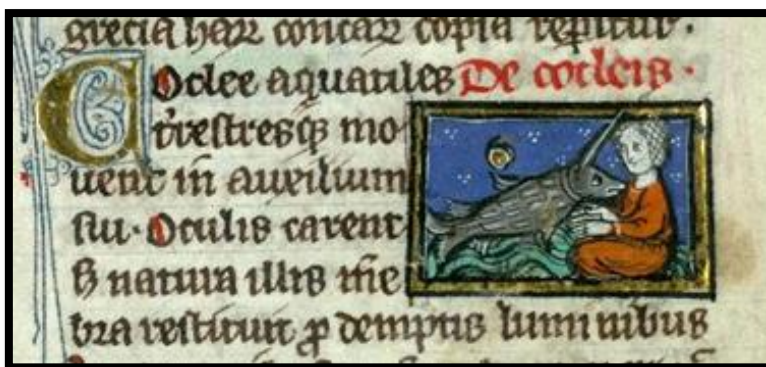 grecia harz concarz copia repitur.
Coclee aquatiles De cocleis.
trestresqz mo
uent in auxilium
sui. Oculis carent
s natura illis me
bra restituit p demptis luminibus